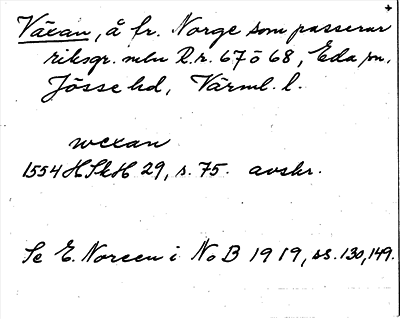 Växan, å fr. Norge som passerar
riksgr. mln R.r. 67 o 68, Eda sn,
Jösse hd, Värml. l.
wexan
1554 HSkH 29, s. 75. avskr.
Se E. Noreen i NoB 1919, ss. 130, 149.